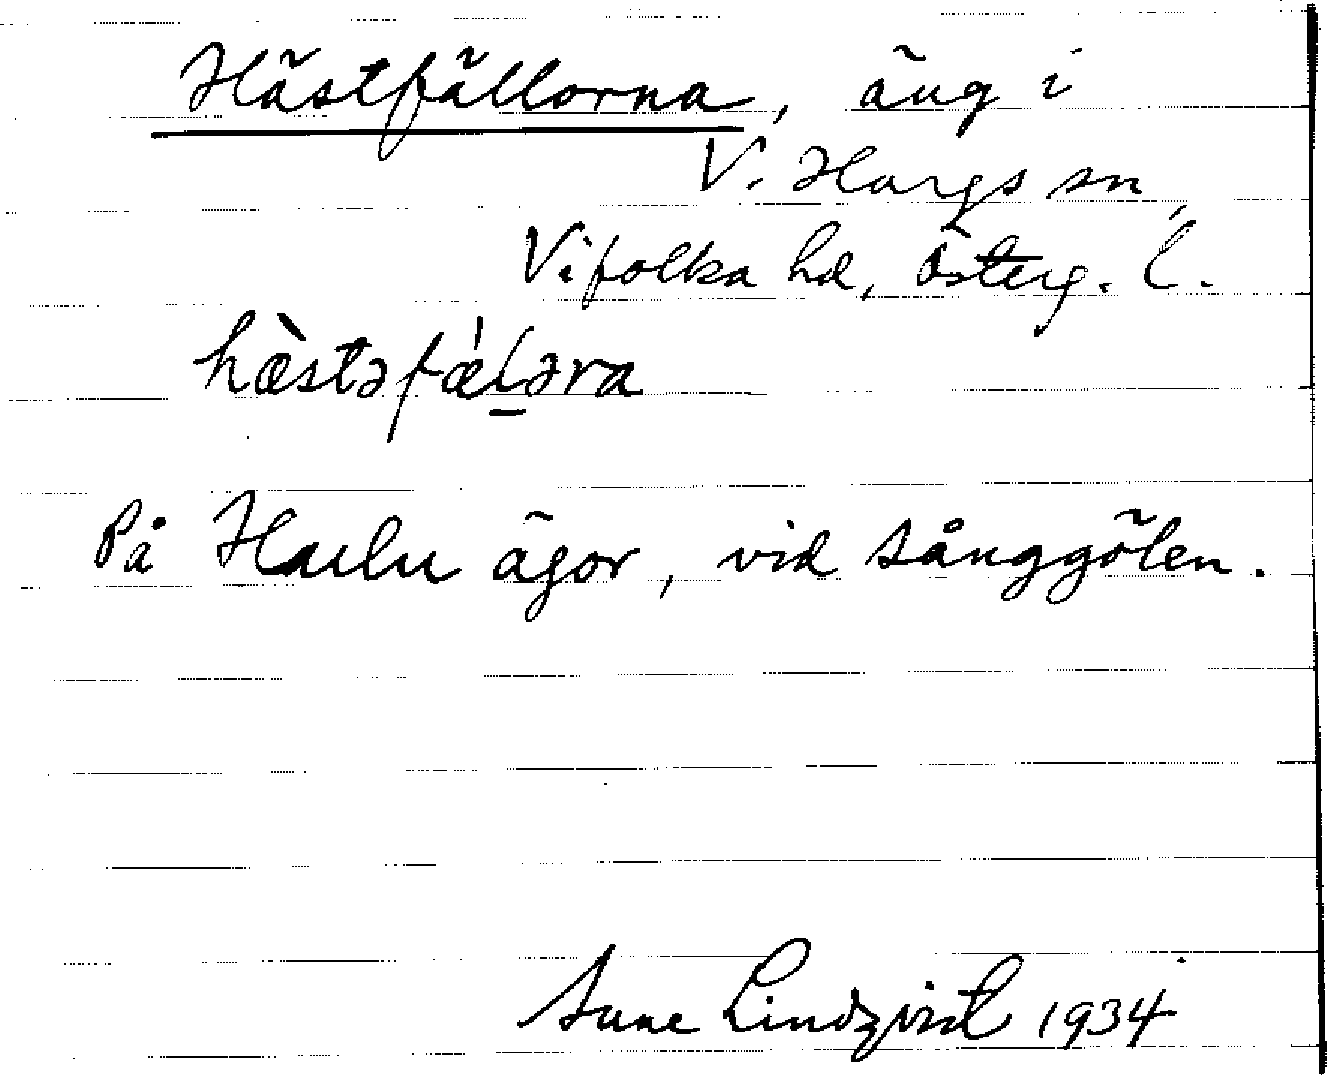 Hästfällorna, äng i
V. Hargs sn,
Vifolka hd, Österg. l.
hæ̀stəfæ̀l̠əra
På ägor, vid Sånggölen.
Sune Lindqvist 1934